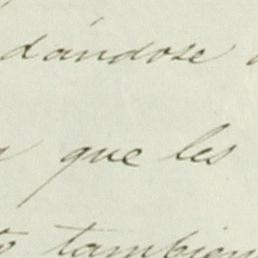 dándose
que les
también